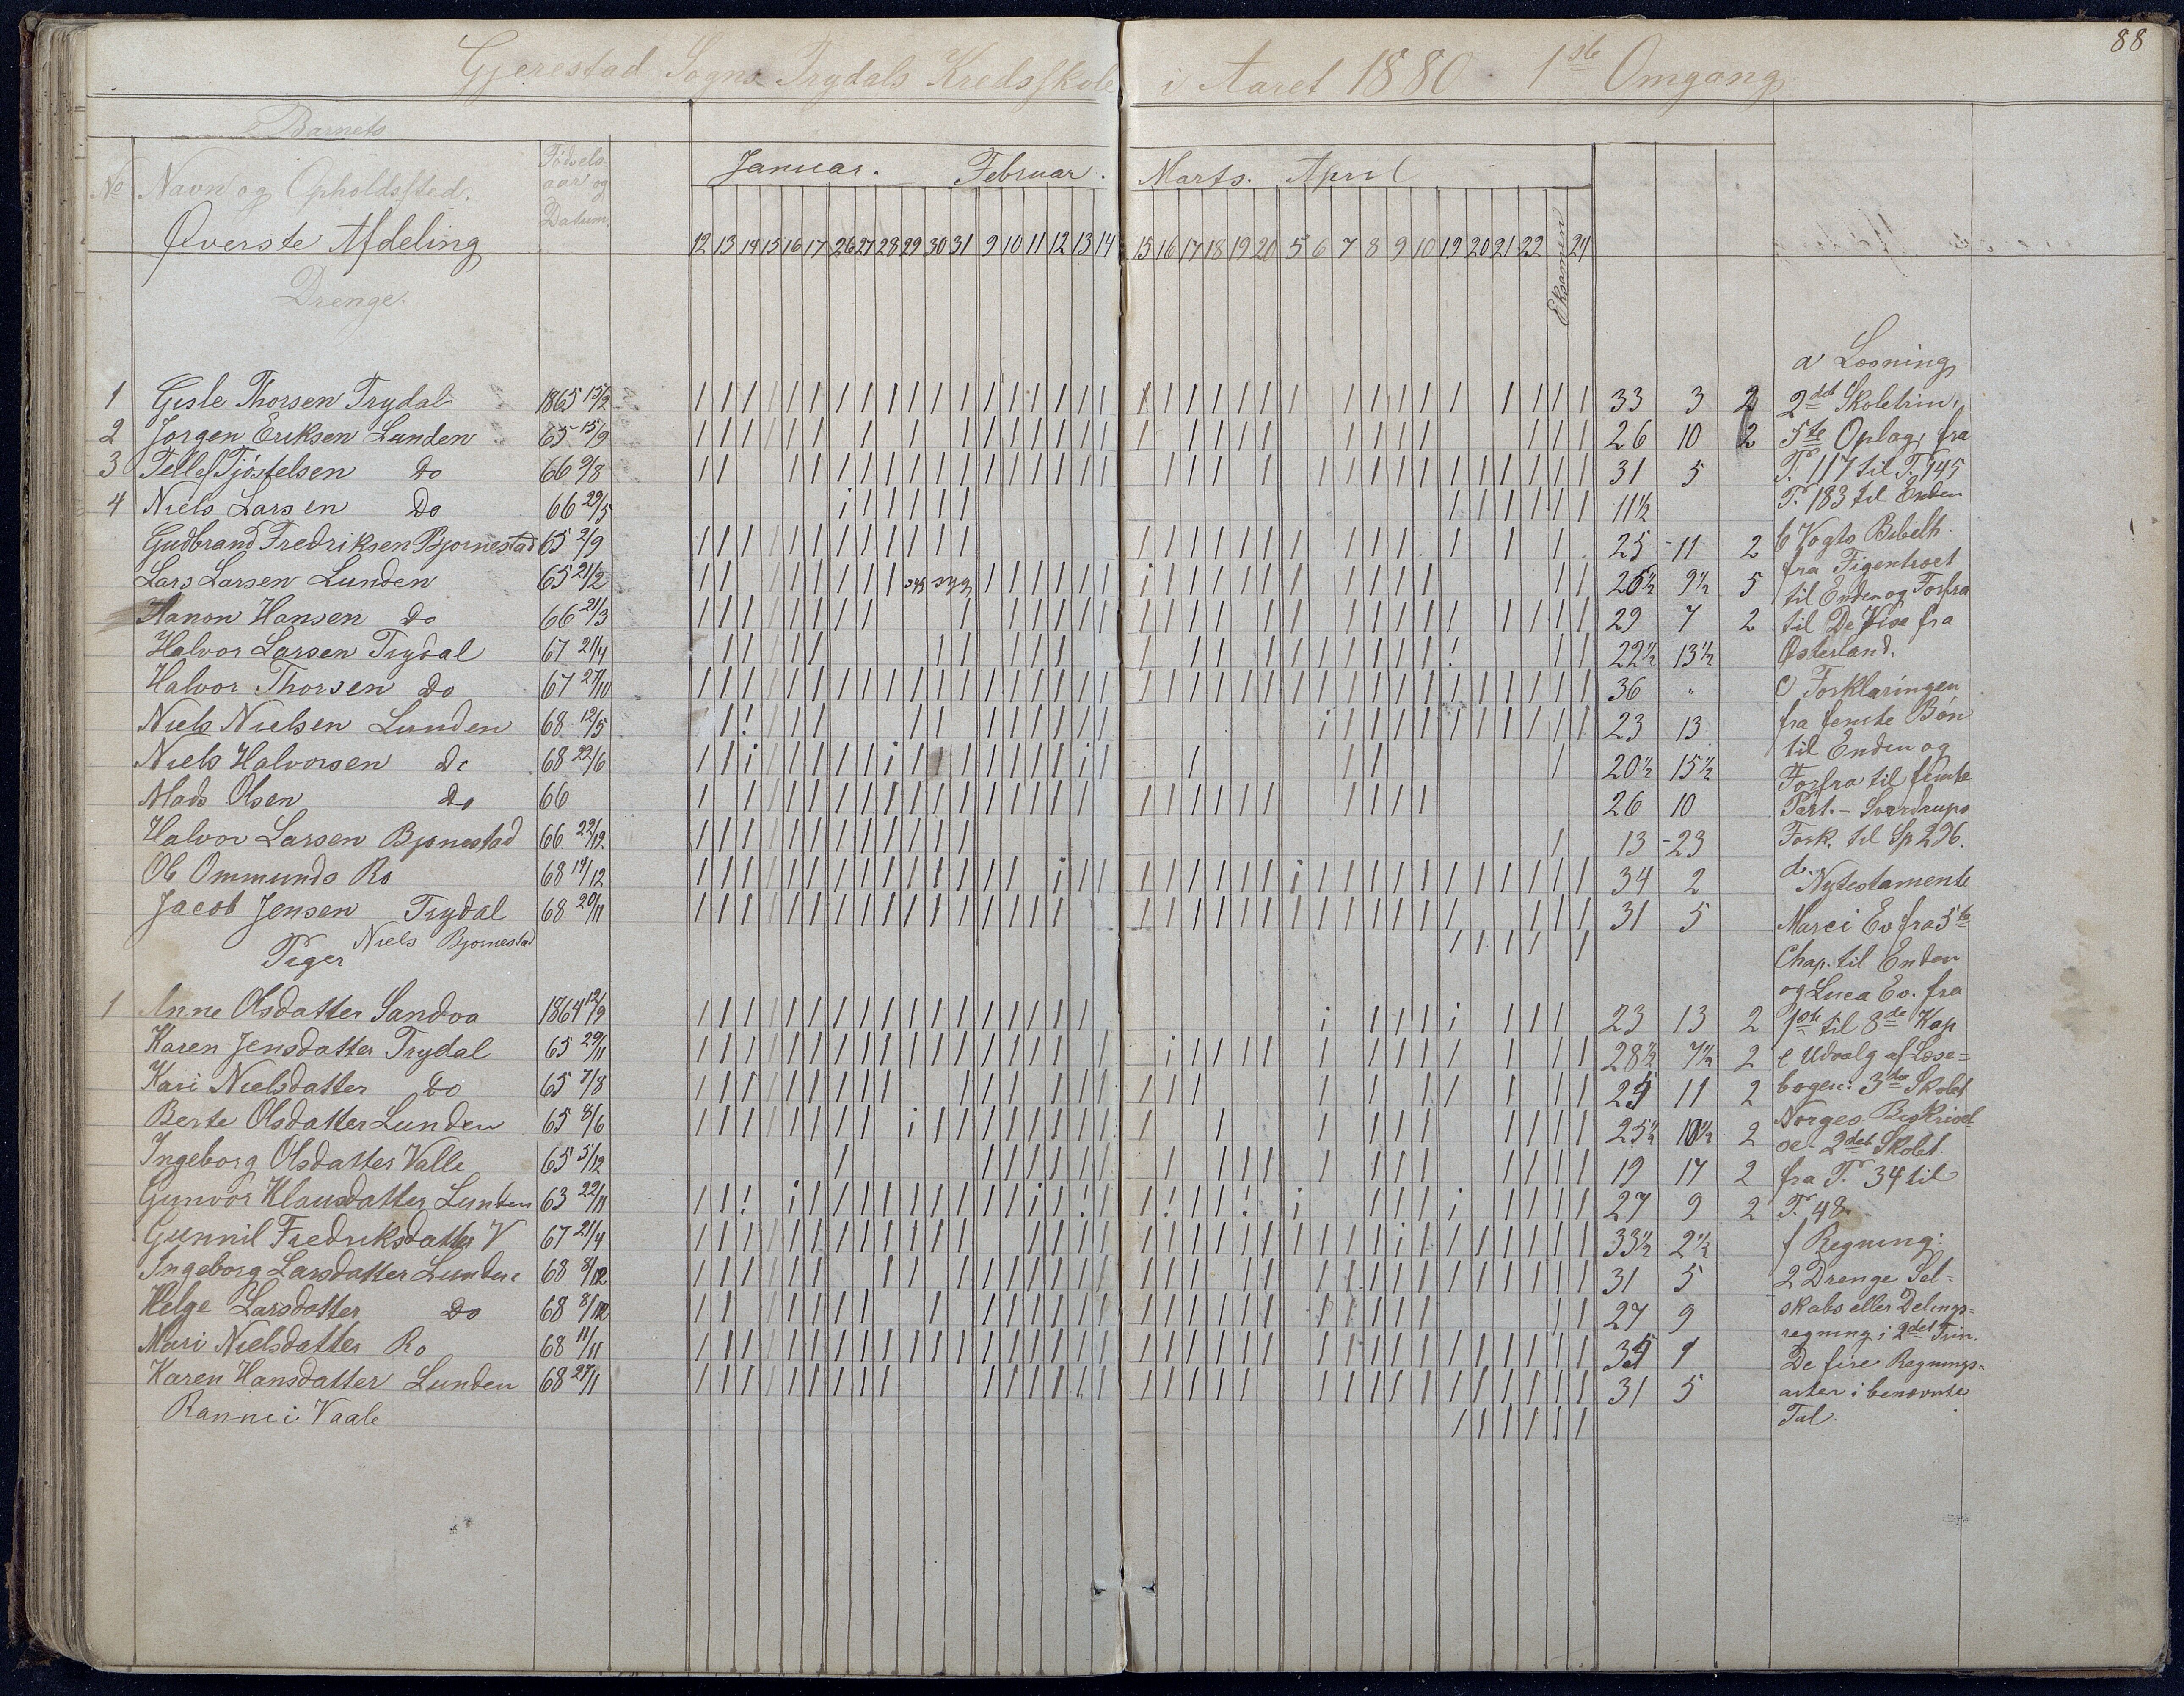 88
Gjerestad Sogns Trydals Kredsskole i Aaret 1880 1ste Omgang
Barnets
No Navn og Opholdssted. Fødsels-aar og Datum.
Januar. Februar. Marts. April
Øverste Afdeling 12 13 14 15 16 17 26 27 28 29 30 31 9 10 11 12 13 14 15 16 17 18 19 20 5 6 7 8 9 10 19 20 21 22 Eksamen 24
Drenge.
1 Gisle Thorsen Trydal 1865 15/2 33 3 2
2 Jørgen Eriksen Lunden 65 15/9 26 10 2
3 Tellef Tjøstelsen do 66 9/8 31 5
4 Niels Larsen Do 66 29/5 11½
Gudbrand Fredriksen Bjørnestad 65 2/9 25 11 2
Lars Larsen Lunden 65 21/2 syg syg 25½ 9½ 5
Hanon Hansen do 66 21/3 29 7 2
Halvor Larsen Trydal 67 21/4 22½ 13½
Halvor Thorsen do 67 27/10 36 "
Niels Nielsen Lunden 68 12/5 23 13
Niels Halvorsen do 68 22/6 20½ 15½
Mads Olsen do 66 26 10
Halvor Larsen Bjørnestad 66 29/12 13 23
Ole Ommunds Ro 68 14/12 34 2
Jacob Jensen Trydal 68 20/11 31 5
Niels Bjørnestad
Piger
1 Anne Olsdatter Sandoa 1864 12/9 23 13 2
Karen Jensdatter Trydal 65 29/11 28½ 7½ 2
Kari Nielsdatter do 65 7/8 25 11 2
Berte Olsdatter Lunden 65 8/6 25½ 10½ 2
Ingeborg Olsdatter Valle 65 5/12 19 17 2
Gunvor Klausdatter Lunden 63 22/11 27 9 2
Gunnil Fredriksdatter V 67 21/4 33½ 2½
Ingeborg Larsdatter Lunden 68 8/12 31 5
Helge Larsdatter Do 68 8/12 27 9
Mari Nielsdatter Ro 68 11/11 35 1
Karen Hansdatter Lunden 68 27/1 31 5
Rannei Vaale
a Læsning
2det Skoletrin,
5te Oplag, fra
P. 117 til P. 145
P. 183 til Enden
b Vogts Bibelh.
fra Figentræet
til Enden og Forfra
til De Vise fra
Østerland.
c Forklaringen
fra femte Bøn
til Enden og
Forfra til femte
Part. - Sverdrups
Fork. til Sp 296.
d. Nytestamente
Marci Ev fra 5te
Chap. til Enden
og Luca Ev. fra
1ste til 8de Kap
e Udvalg af Læse=
bogen: 3die Skolet
Norges Beskrivel
se 2det Skolet.
fra P. 34 til
P. 48.
f Regning:
2 Drenge Sel=
skabs eller Delings=
regning i 2det Trin.
De fire Regnings=
arter i benævnte
Tal.